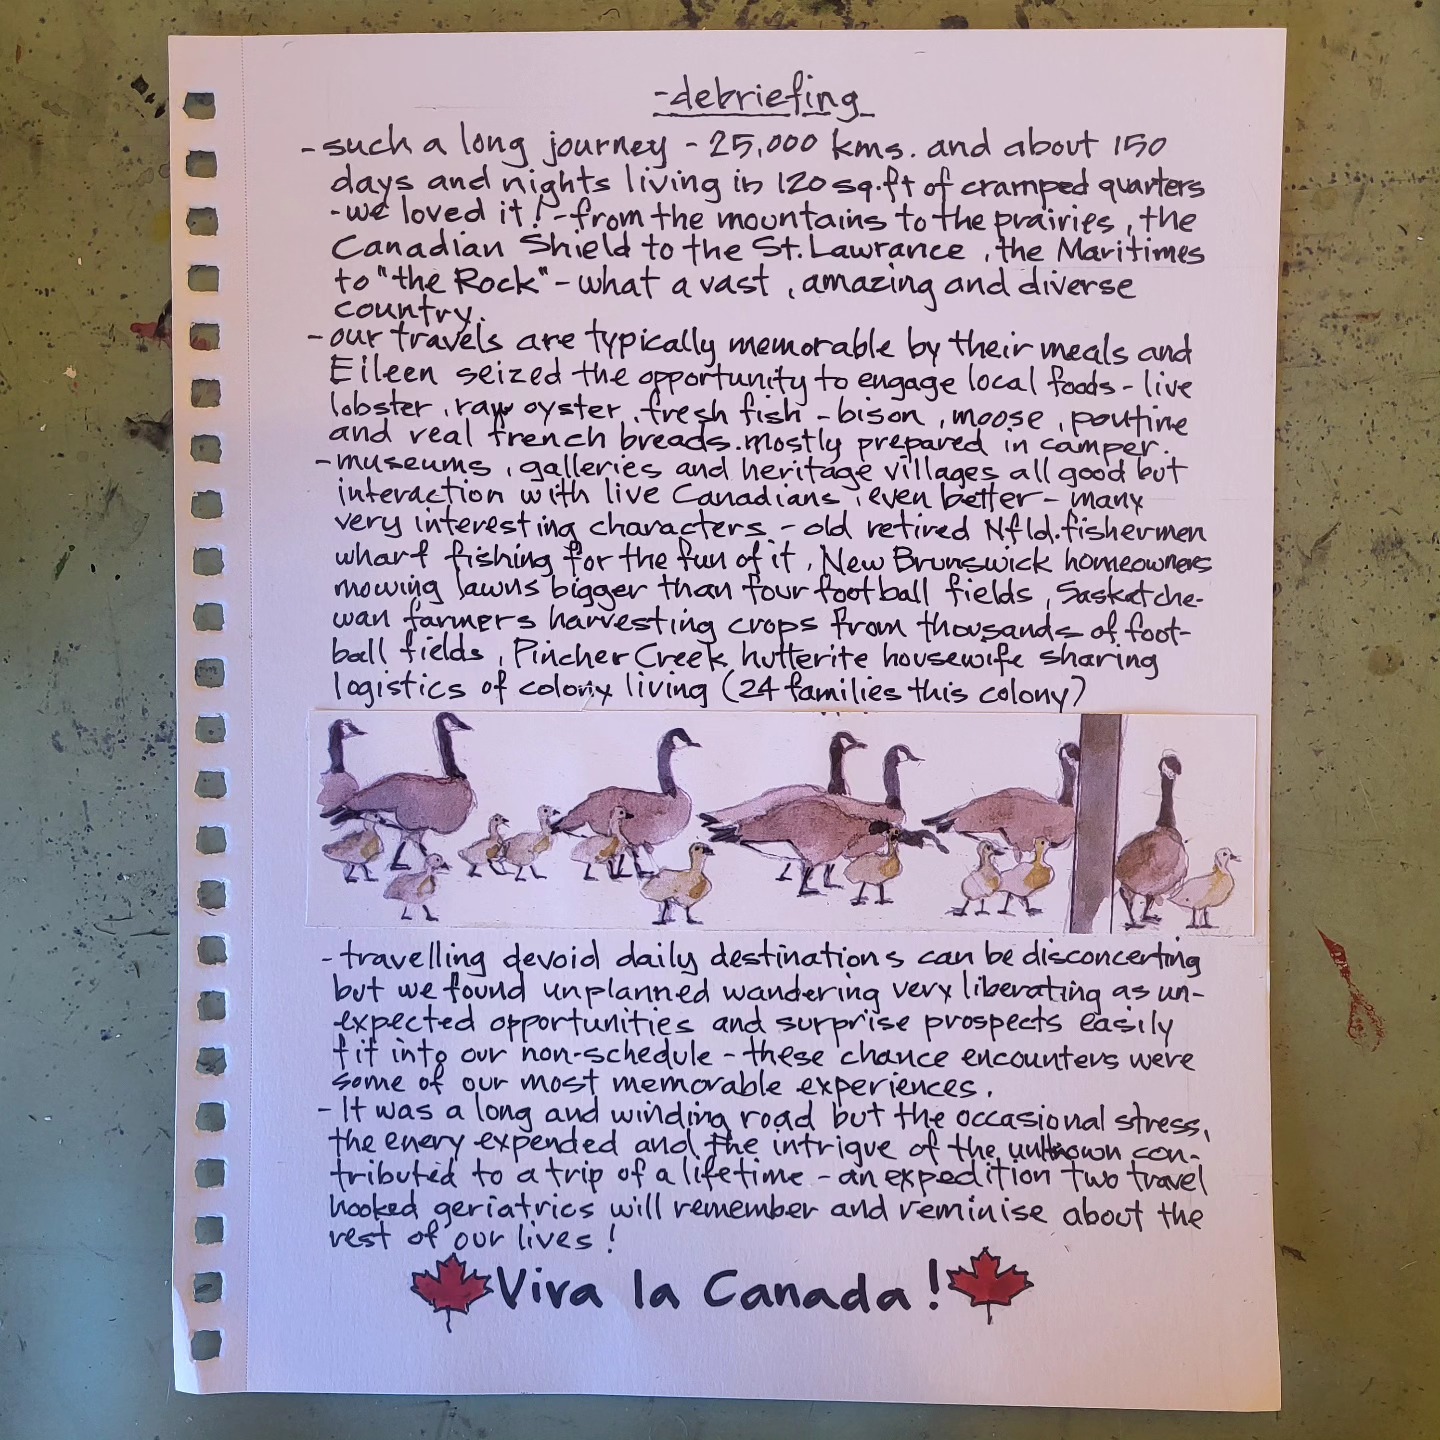 -debriefing
- such a long journey - 25,000 kms. and about 150
days and nights living in 120 sq.ft of cramped quarters
- we loved it! - from the mountains to the prairies, the
Canadian Shield to the St. Lawrance, the Maritimes
to "the Rock" - what a vast, amazing and diverse
country.
- our travels are typically memorable by their meals and
Eileen seized the opportunity to engage local foods - live
lobster, raw oyster, fresh fish - bison, moose, poutine
and real french breads. mostly prepared in camper.
- museums, galleries and heritage villages all good but
interaction with live Canadians, even better - many
very interesting characters - old retired Nfld. fishermen
wharf fishing for the fun of it, New Brunswick homeowners
mowing lawns bigger than four football fields, Saskatche-
wan farmers harvesting crops from thousands of foot-
ball fields, Pincher Creek hutterite housewife sharing
logistics of colony living (24 families this colony)
- travelling devoid daily destinations can be disconcerting
but we found unplanned wandering very liberating as un-
expected opportunities and surprise prospects easily
fit into our non-schedule - these chance encounters were
some of our most memorable experiences.
- It was a long and winding road but the occasional stress,
the enery expended and the intrigue of the unknown con-
tributed to a trip of a lifetime - an expedition two travel
hooked geriatrics will remember and reminise about the
rest of our lives!
Viva la Canada!